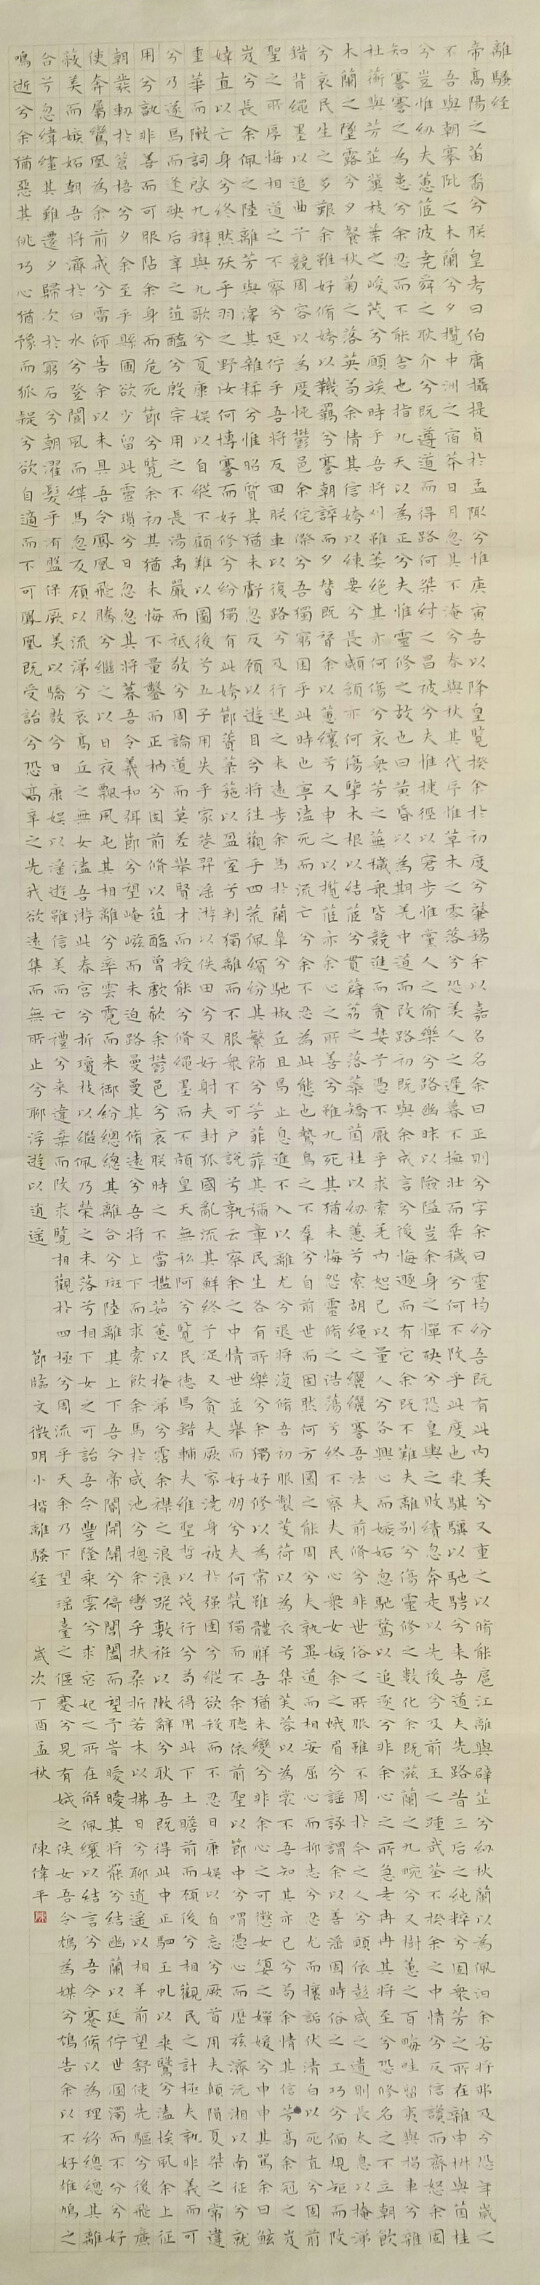 離騷經
帝高陽之苗裔兮朕皇考曰伯庸攝提貞於孟陬兮惟庚寅吾以降皇覽揆余於初度兮肇錫余以嘉名名余曰正則兮字余曰靈均紛吾既有此內美兮又重之以脩能扈江離與辟芷兮紉秋蘭以為佩汩余若將弗及兮恐年歲之
不吾與朝搴阰之木蘭兮夕攬中洲之宿莽日月忽其不淹兮春與秋其代序惟草木之零落兮恐美人之遲暮不撫壯而棄穢兮何不改乎此度也乘騏驥以馳騁兮來吾道夫先路昔三后之純粹兮固衆芳之所在雜申椒與菌桂
兮豈惟紉夫蕙茝彼堯舜之耿介兮既遵道而得路何桀紂之昌被兮夫惟捷徑以窘步惟黨人之偷樂兮路幽昧以險隘豈余身之憚殃兮恐皇輿之敗績忽奔走以先後兮及前王之踵武荃不揆余之中情兮反信讒而齌怒余固
知謇謇之為患兮余忍而不能舍也指九天以為正兮夫惟靈脩之故也曰黃昏以為期羌中道而改路初既與余成言兮後悔遯而有它余既不難夫離別兮傷靈脩之數化余既滋蘭之九畹兮又樹蕙之百畮畦留夷與揭車兮雜
杜蘅與芳芷冀枝葉之峻茂兮願竢時乎吾將刈雖萎絕其亦何傷兮哀衆芳之蕪穢衆皆競進而貪婪兮憑不厭乎求索羌內恕己以量人兮各興心而嫉妬忽馳騖以追逐兮非余心之所急老冉冉其將至兮恐脩名之不立朝飲
木蘭之墜露兮夕餐秋菊之落英苟余情其信姱以練要兮長顑頷亦何傷擥木根以結茝兮貫薜荔之落蘂矯菌桂以紉蕙兮索胡繩之纚纚謇吾法夫前脩兮非世俗之所服雖不周於今之人兮願依彭咸之遺則長太息以掩涕
兮哀民生之多艱余雖好脩姱以鞿羈兮謇朝誶而夕替既替余以蕙纕兮又申之以攬茝亦余心之所善兮雖九死其猶未悔怨靈脩之浩蕩兮終不察夫民心衆女嫉余之蛾眉兮謠諑謂余以善淫固時俗之工巧兮偭規矩而改
錯背繩墨以追曲兮競周容以為度忳鬱邑余侘傺兮吾獨窮困乎此時也寧溘死而流亡兮余不忍為此態也鷙鳥之不羣兮自前世而固然何方圜之能周兮夫孰異道而相安屈心而抑志兮忍尤而攘詬伏清白以死直兮固前
聖之所厚悔相道之不察兮延佇乎吾將反回朕車以復路兮及行迷之未遠步余馬於蘭皋兮馳椒丘且焉止息進不入以離尤兮退將復脩吾初服製芰荷以為衣兮集芙蓉以為裳不吾知其亦已兮苟余情其信芳高余冠之岌
岌兮長余佩之陸離芳與澤其雜糅兮惟昭質其猶未虧忽反顧以遊目兮將往觀乎四荒佩繽紛其繁飾兮芳菲菲其彌章民生各有所樂兮余獨好脩以為常雖體解吾猶未變兮豈余心之可懲女嬃之嬋媛兮申申其詈余曰鮌
婞直以亡身兮終然殀乎羽之野汝何博謇而好脩兮紛獨有此姱節薋菉葹以盈室兮判獨離而不服衆不可戶說兮孰云察余之中情世並舉而好朋兮夫何煢獨而不余聽依前聖以節中兮喟憑心而歷茲濟沅湘以南征兮就
重華而敶詞啟九辯與九歌兮夏康娛以自縱不顧難以圖後兮五子用失乎家巷羿淫游以佚田兮又好射夫封狐固亂流其鮮終兮浞又貪夫厥家澆身被於强圉兮縱欲殺而不忍日康娛以自忘兮厥首用夫顛隕夏桀之常違
兮乃遂焉而逢殃后辛之菹醢兮殷宗用之不長湯禹嚴而祗敬兮周論道而莫差舉賢才而授能兮脩繩墨而不頗皇天無私阿兮覽民德焉錯輔夫維聖哲之茂行兮苟得用此下土瞻前而顧後兮相觀民之計極夫孰非義而可
用兮孰非善而可服阽余身而危死節兮覽余初其猶未悔不量鑿而正枘兮固前脩以菹醢曾歔欷余鬱邑兮哀朕時之不當攬茹蕙以掩涕兮霑余襟之浪浪跪敷衽以敶辭兮耿吾既得此中正駟玉虬以乘鷖兮溘埃風余上征
朝發軔於蒼梧兮夕余至乎縣圃欲少留此靈瑣兮日忽忽其將暮吾令羲和弭節兮望崦嵫而勿迫路曼曼其脩遠兮吾將上下而求索飲余馬於咸池兮摠余轡乎扶桑折若木以拂日兮聊逍遙以相羊前望舒使先驅兮後飛廉
使奔屬鸞凰為余前戒兮雷師告余以未具吾令鳳凰飛騰兮繼之以日夜飄風屯其相離兮率雲霓而來御紛總總其離合兮斑陸離其上下吾令帝閽開關兮倚閶闔而望予時曖曖其將罷兮結幽蘭以延佇世溷濁而不分兮好
蔽美而嫉妬朝吾將濟於白水兮登閬風而緤馬忽反顧以流涕兮哀高丘之無女溘吾游此春宮兮折瓊枝以繼佩及榮華之未落兮相下女之可詒吾令豐隆乘雲兮求宓妃之所在解佩纕以結言兮吾令蹇脩以為理紛總總其離
合兮忽緯繣其難遷夕歸次於窮石兮朝濯髮乎洧盤保厥美以驕敖兮日康娛以淫遊雖信美而無禮兮來違棄而改求覽相觀於四極兮周流乎天余乃下望瑤臺之偃蹇兮見有娀之佚女吾令鴆為媒兮鴆告余以不好雄鳩之
鳴逝兮余猶惡其佻巧心猶豫而狐疑兮欲自適而不可鳳凰既受詒兮恐高辛之先我欲遠集而無所止兮聊浮遊以逍遙
節臨文徵明小楷離騷經 歲次丁酉孟秋 陳偉平